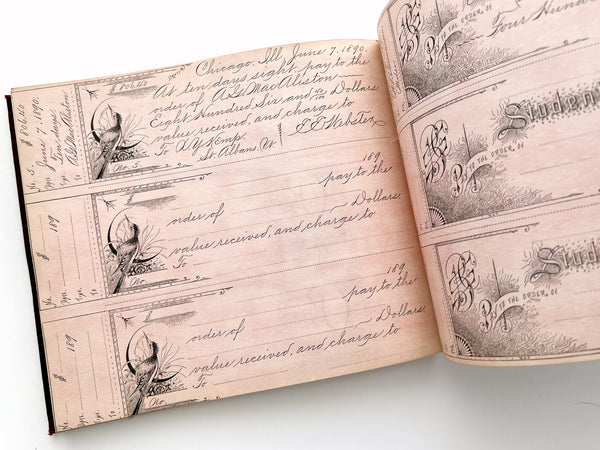 No. 5.
$ 806.40
June 7, 1890.
Ten days
A.L. MacAliston
$ 806.40
Chicago, Ill. June 7, 1890.
At ten days sight, pay to the
order of A.L. MacAliston
Eight Hundred Six, and 40/100 Dollars,
value received, and charge to
To X.Y. Kemp, E.E. Webster.
St. Albans, Vt.
No. 5.
$ 189
189
pay to the
order of
Dollars
value received, and charge to
To
No.
$ 189
189
pay to the
order of
Dollars
value received, and charge to
To
No.
TO THE ORDER OF
Four Hund
Student
TO THE ORDER OF
Stude
TO THE ORDER OF